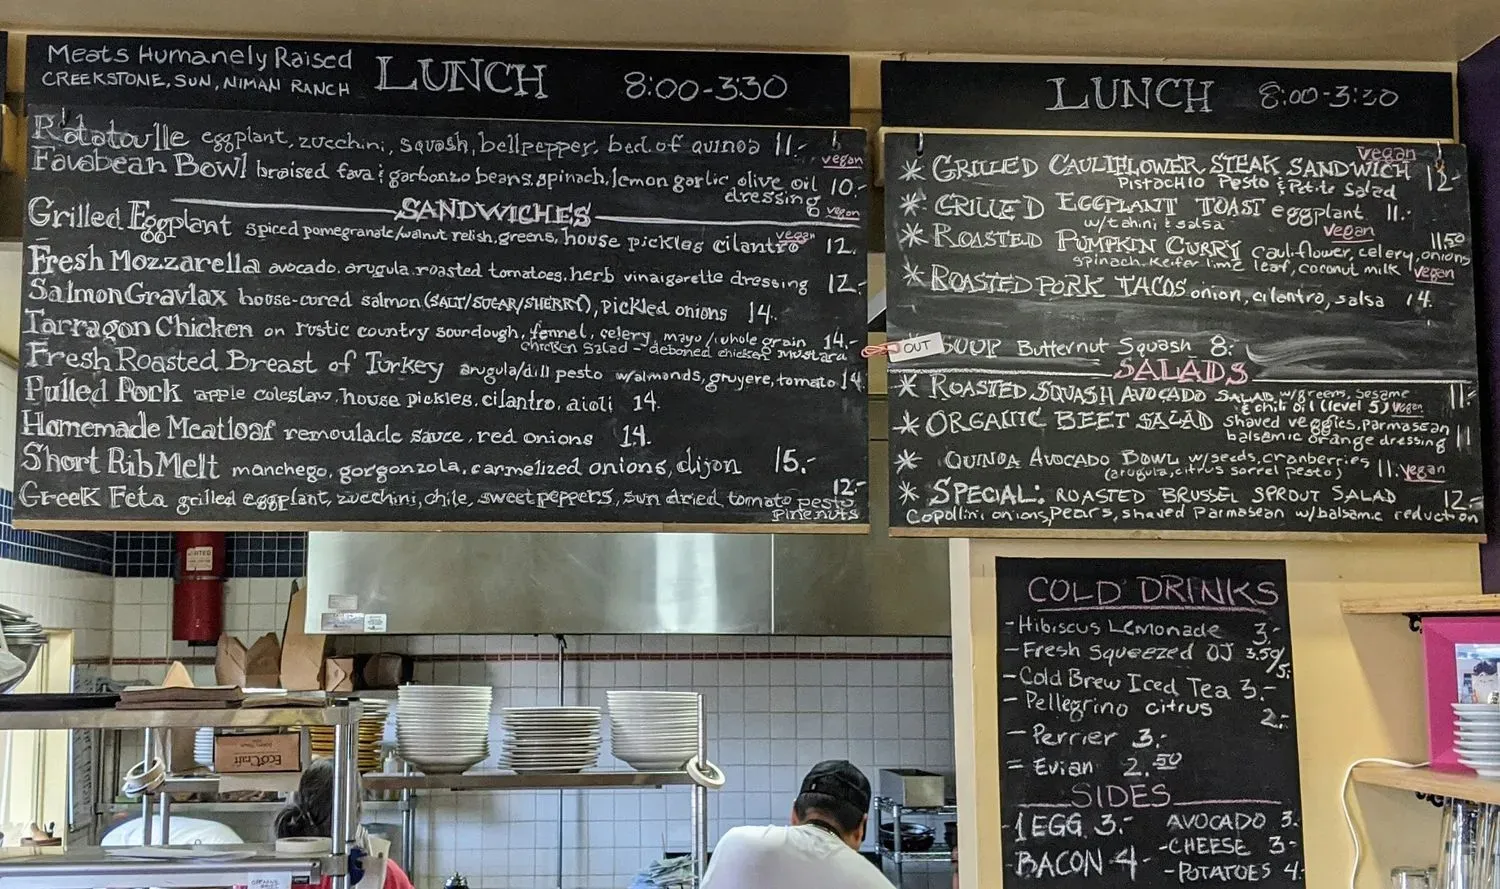 Meats Humanely Raised
CREEKSTONE, SUN, NIMAN RANCH
LUNCH 8:00-3:30
Ratatouille eggplant, zucchini, squash, bellpepper, bed of quinoa 11.-
vegan
Favabean Bowl braised fava & garbonzo beans, spinach, lemon garlic olive oil 10.-
dressing vegan
SANDWICHES
Grilled Eggplant spiced pomegranate/walnut relish, greens, house pickles cilantro 12.
vegan
Fresh Mozzarella avocado, arugula, roasted tomatoes, herb vinaigarette dressing 12.-
Salmon Gravlax house-cured salmon (SALT/SUGAR/SHERRY), pickled onions 14.
Tarragon Chicken on rustic country sourdough, fennel, celery, mayo/whole grain 14.-
chicken salad - deboned chicken mustard
Fresh Roasted Breast of Turkey arugula/dill pesto w/almonds, gruyere, tomato 14
Pulled Pork apple coleslaw, house pickles, cilantro, aioli 14.
Homemade Meatloaf remoulade sauce, red onions 14.
Short Rib Melt manchego, gorgonzola, carmelized onions, dijon 15.-
Greek Feta grilled eggplant, zucchini, chile, sweet peppers, sun dried tomato pesto 12.-
pine nuts
LUNCH 8:00-3:30
vegan
* GRILLED CAULIFLOWER STEAK SANDWICH 12.-
PISTACHIO Pesto & Petite Salad
* GRILLED EGGPLANT TOAST eggplant 11.-
w/tahini & salsa vegan
* ROASTED PUMPKIN CURRY cauliflower, celery, onions 11.50
spinach, Keifer lime leaf, coconut milk vegan
* ROASTED PORK TACOS onion, cilantro, salsa 14.
OUT
SOUP Butternut Squash 8.-
SALADS
* ROASTED SQUASH AVOCADO SALAD w/greens, sesame 11.-
& chili oil (level 5) vegan
* ORGANIC BEET SALAD shaved veggies, parmasean
balsemic orange dressing 11
* QUINOA AVOCADO BOWL w/seeds, cranberries
(arugula, citrus sorrel pesto) 11. vegan
* SPECIAL: ROASTED BRUSSEL SPROUT SALAD 12.-
Copollini onions, pears, shaved Parmasean w/balsamic reduction
COLD DRINKS
- Hibiscus Lemonade 3.-
- Fresh Squeezed OJ 3.50/5.
- Cold Brew Iced Tea 3.-
- Pellegrino citrus 2.-
- Perrier 3.-
- Evian 2.50
SIDES
- 1 EGG 3.- AVOCADO 3.
- CHEESE 3-
- BACON 4- - POTATOES 4.
EcoCraft